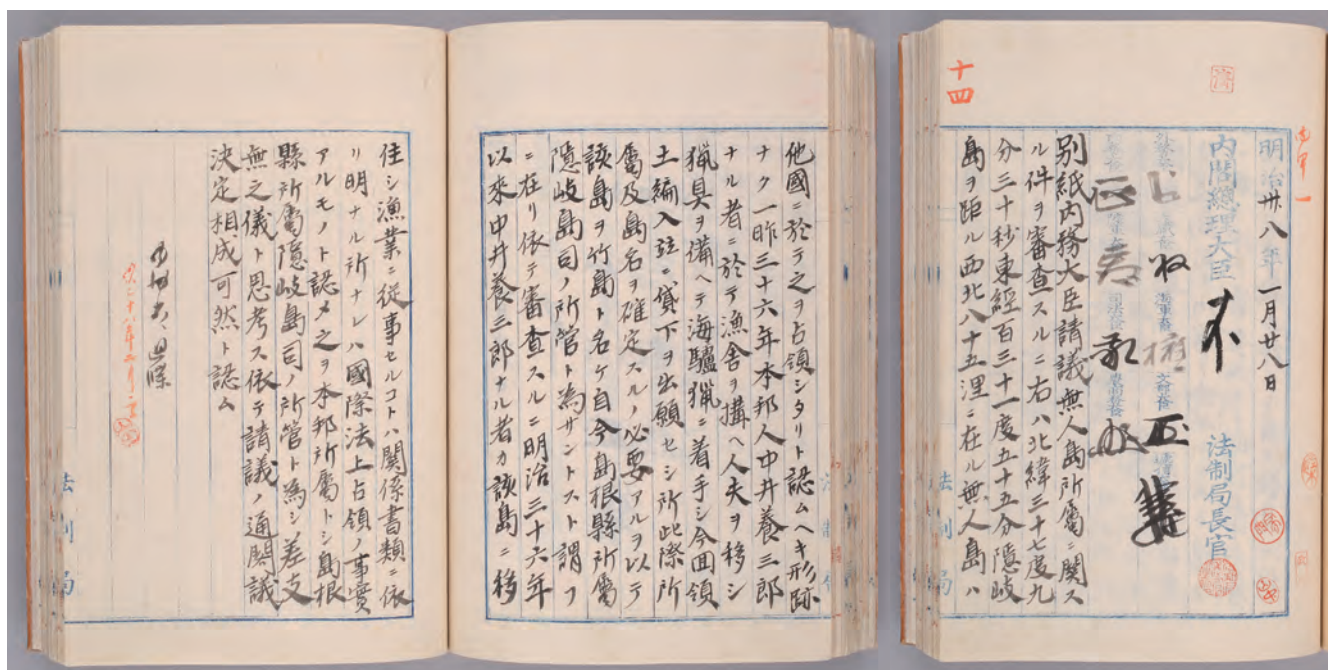 明治卅八年一月廿八日
内閣總理大臣
法制局長官
十四
別紙内務大臣請議無人島所屬ニ関ス
ル件ヲ審査スルニ右ハ北緯三十七度九
分三十秒東經百三十一度五十五分隠岐
島ヲ距ル西北八十五浬ニ在ル無人島ハ
他國ニ於テ之ヲ占領シタリト認ムヘキ形跡
ナク一昨三十六年本邦人中井養三郎
ナル者ニ於テ漁舎ヲ搆ヘ人夫ヲ移シ
猟具ヲ備ヘテ海驢猟ニ着手シ今回領
土編入並ニ貸下ヲ出願セシ所此際所
屬及島名ヲ確定スルノ必要アルヲ以テ
該島ヲ竹島ト名ケ自今島根縣所屬
隠岐島司ノ所管ト為サントスト謂フ
ニ在リ依テ審査スルニ明治三十六年
以來中井養三郎ナル者カ該島ニ移
住シ漁業ニ従事セルコトハ関係書類ニ依
リ明ナル所ナレハ國際法上占領ノ事實
アルモノト認メ之ヲ本邦所屬トシ島根
縣所屬隠岐島司ノ所管ト為シ差支
無之儀ト思考ス依テ請議ノ通閣議
決定相成可然ト認ム
法制局